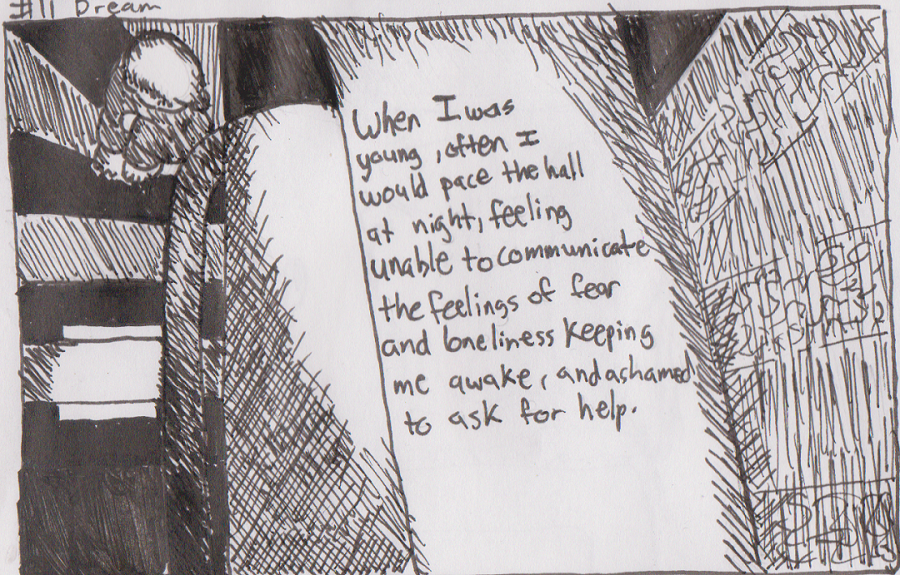 #11 Dream
When I was
young, often I
would pace the hall
at night, feeling
unable to communicate
the feelings of fear
and loneliness keeping
me awake, and ashamed
to ask for help.